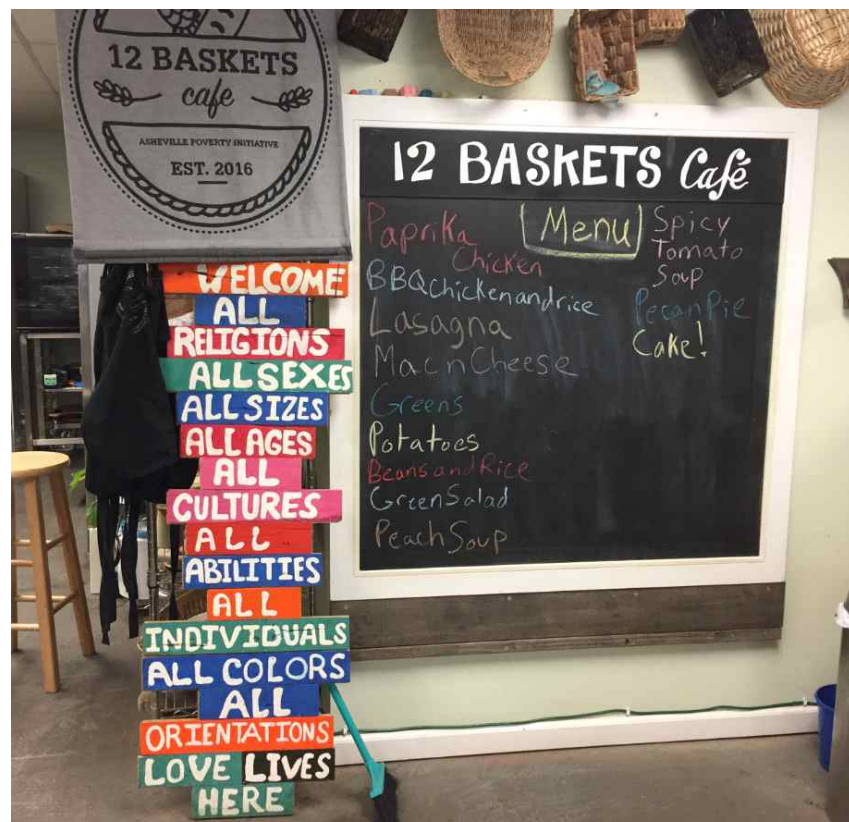 12 BASKETS
cafe
ASHEVILLE POVERTY INITIATIVE
EST. 2016
WELCOME
ALL
RELIGIONS
ALL SEXES
ALL SIZES
ALL AGES
ALL
CULTURES
ALL
ABILITIES
ALL
INDIVIDUALS
ALL COLORS
ALL
ORIENTATIONS
LOVE LIVES
HERE
12 BASKETS Café
Menu
Paprika
Chicken
BBQchickenandrice
Lasagna
Mac n Cheese
Greens
Potatoes
Beans and Rice
Green Salad
Peach Soup
Spicy
Tomato
Soup
Pecan Pie
Cake!